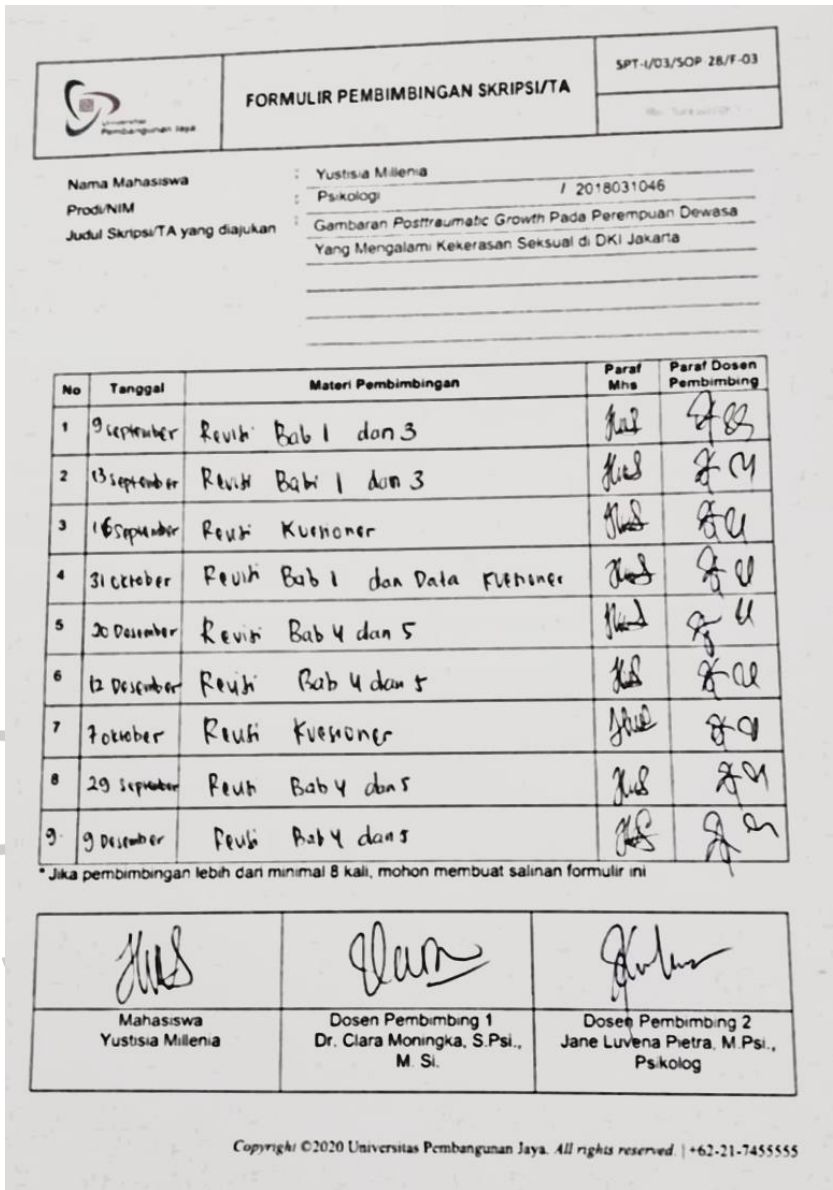 SPT-I/03/SOP-28/F-03
FORMULIR PEMBIMBINGAN SKRIPSI/TA
Universitas
Pembangunan Jaya
Nama Mahasiswa : Yustisia Millenia
Prodi/NIM : Psikologi / 2018031046
Judul Skripsi/TA yang diajukan : Gambaran Posttraumatic Growth Pada Perempuan Dewasa
Yang Mengalami Kekerasan Seksual di DKI Jakarta
No Tanggal Materi Pembimbingan Paraf Mhs Paraf Dosen Pembimbing
1 9 September Revisi Bab 1 dan 3
2 13 September Revisi Bab 1 dan 3
3 16 September Revisi Kuesioner
4 31 Oktober Revisi Bab 1 dan Data Kuesioner
5 20 Desember Revisi Bab 4 dan 5
6 12 Desember Revisi Bab 4 dan 5
7 7 Oktober Revisi Kuesioner
8 29 September Revisi Bab 4 dan 5
9. 9 Desember Revisi Bab 4 dan 5
* Jika pembimbingan lebih dari minimal 8 kali, mohon membuat salinan formulir ini
Mahasiswa
Yustisia Millenia
Dosen Pembimbing 1
Dr. Clara Moningka, S.Psi.,
M. Si.
Dosen Pembimbing 2
Jane Luvena Pietra, M.Psi.,
Psikolog
Copyright ©2020 Universitas Pembangunan Jaya. All rights reserved. | +62-21-7455555